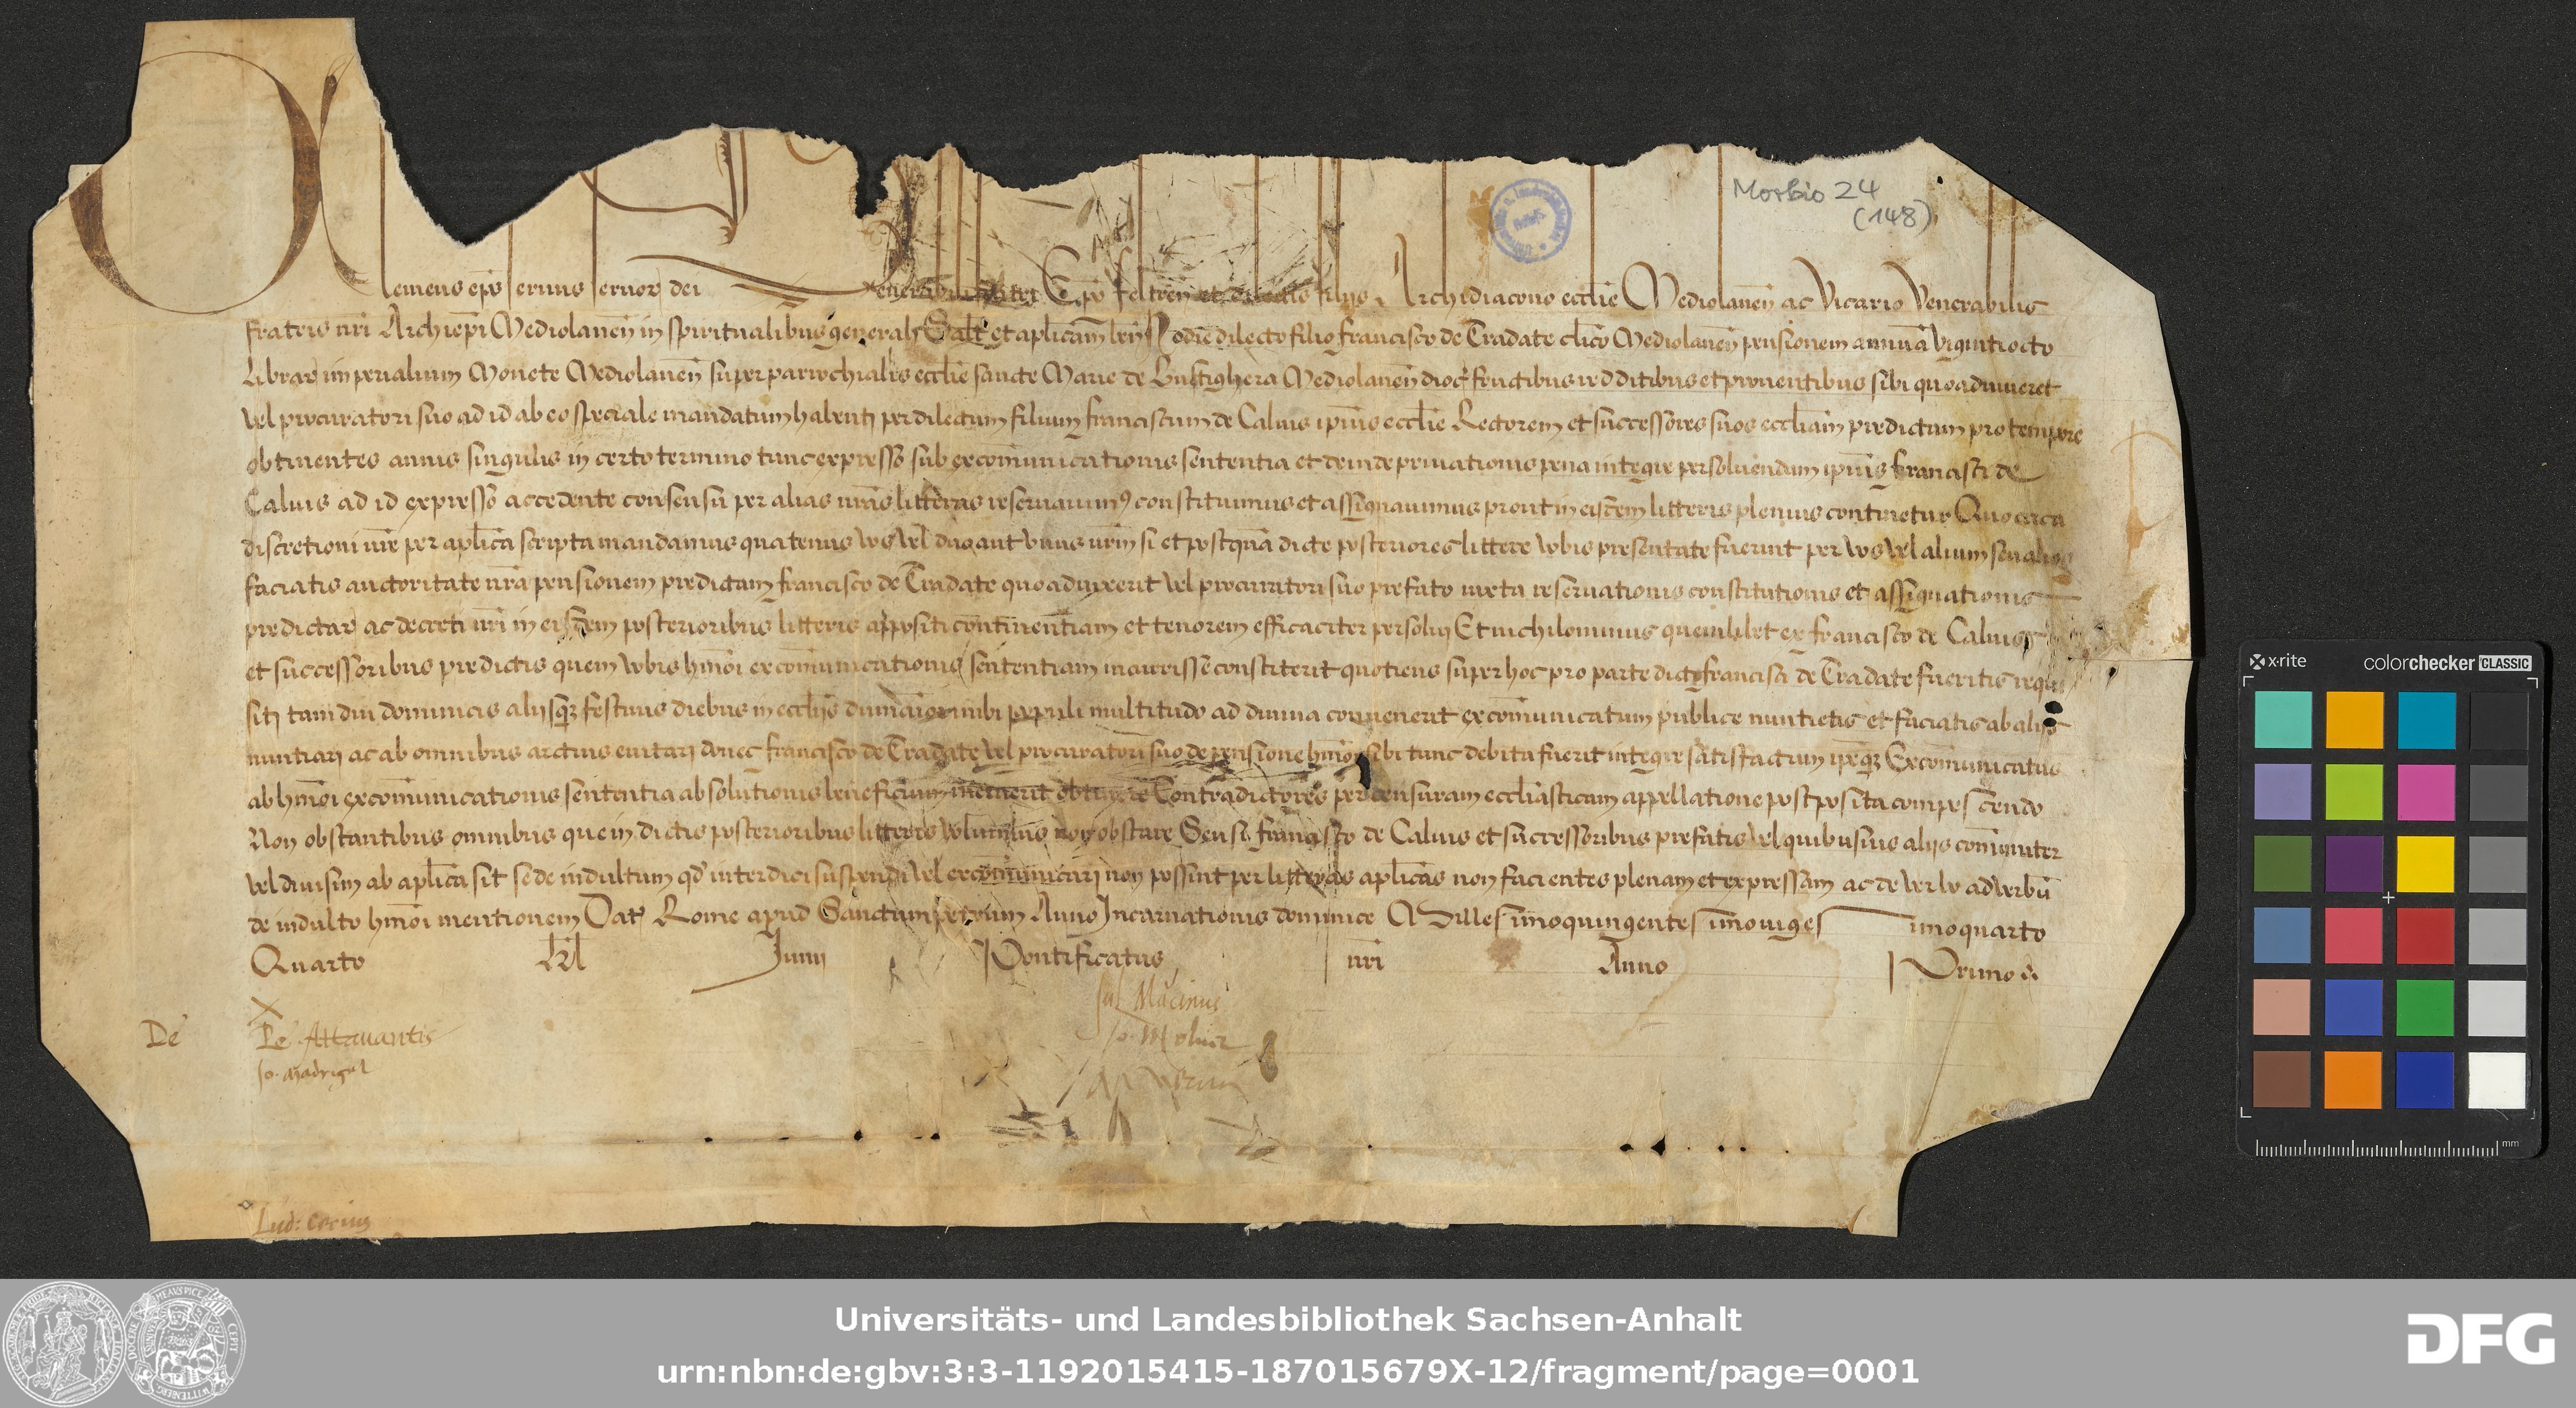 Morbio 24
(148)
Clemens ep̄s servus servor dei Venerabili fratri Ep̄o feltren̄ et dilectis filijs Archidiacono ecclīe Mediolanen̄ ac Vicario Venerabilis
fratris nrī Archiep̄i Mediolanen̄ in spiritualibus generali Salt̄ et aplicam̄ ben̄ Hodie dilecto filio francisco de Tradate clīco Mediolanen̄ pensionem annuā vigintiocto
Librar imperialium Monete Mediolanen̄ super parrochialis ecclīe sancte Marie de Bustighera Mediolanen̄ dioc̄ fructibus redditibus et proventibus sibi quoadviveret
vel procuratori suo ad id ab eo speciale mandatum habenti per dilectum filium franciscum de Calvis ipīus ecclīe Rectorem et successores suos eccliam̄ predictam pro tempore
obtinentes annis singulis in certo termino tunc expresso sub excom̄unicationis sententia et deinde privationis pena integre persolvendam ipīus francisci de
Calvis ad id expresso accedente consensu per alias nrās litteras reservavim9 constituimus et assignavimus prout in eisdem litteris plenius continetur Quocirca
discretioni vrē per aplīca scripta mandamus quatenus vos vel duo aut unus vrm̄ si et postquā dicte posteriores littere vobis presentate fuerint per vos vel alium seu alios
faciatis auctoritate nrā pensionem predictam francisco de Tradate quoadvixerit vel procuratori suo prefato iuxta reservationis constitutionis et assignationis
predictar ac decreti nrī in eisdem posterioribus litteris appositi continentiam et tenorem efficaciter persolvi Et nichilominus quemlibet ex francisco de Calvis
et successoribus predictis quem vobis hmōi excom̄unicationis sententiam incurrisse constiterit quotiens super hoc pro parte dicti francisci de Tradate fueritis requi
siti tamdiu dominicis alijsq3 festivis diebus in ecclījs dum maior inibi populi multitudo ad divina convenerit excom̄unicatum publice nuntietis et faciatis ab alijs
nuntiari ac ab omnibus arctius evitari donec francisco de Tradate vel procuratori suo de pensione hmōi sibi tunc debita fuerit integre satisfactum ipseq3 Excom̄unicatus
ab hmōi excom̄unicationis sententia absolutionis beneficium meruerit obtinere Contradictores per censuram ecclīasticam appellatione postposita compescendo
Non obstantibus omnibus que in dictis posterioribus litteris volumus non obstare Seu si francisco de Calvis et successoribus prefatis vel quibusvis alijs com̄uniter
vel divisim ab aplīca sit sede indultum qd̄ interdici suspendi vel excom̄unicari non possint per litteras aplīcas non facientes plenam et expressam ac de verbo ad verbū
de indulto hmōi mentionem Dat Rome apud Sanctumpetrum Anno Incarnationis dominice Millesimoquingentesimovigesimoquarto
Quarto kl̄ Junij Pontificatus nrī Anno Primo
De
Pe Attavantis
Jo. Madrigal
Jul Macinus
Lud:
x-rite colorchecker CLASSIC
mm
Universitäts- und Landesbibliothek Sachsen-Anhalt
urn:nbn:de:gbv:3:3-1192015415-187015679X-12/fragment/page=0001
DFG